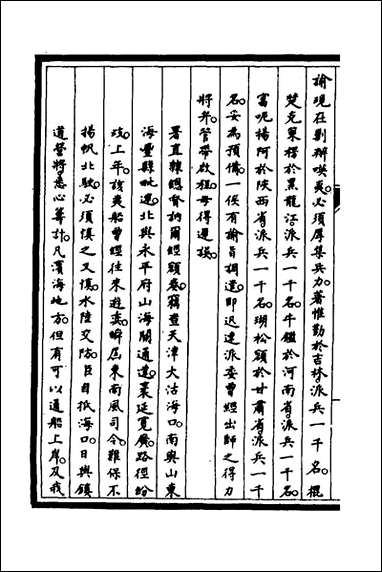 諭現在剿辦㗲夷。必須厚集兵力。著惟勤於吉林。派兵一千名。棍
楚克策楞於黑龍江。派兵一千名。牛鑑於河南省。派兵一千名。
富呢揚阿於陝西省。派兵一千名。瑚松額於甘肅省。派兵一千
名。妥為預備。一俟有諭旨調遣。即迅速派委曾經出師之得力
將弁。管帶啟程。毋得遲誤。
署直隸總督訥爾經額奏。竊查天津大沽海口。南與山東
海豐縣毗連。北與永平府山海關通連。袤延寬廣。路徑紛
歧。上年。該夷船曾經往來遊奕。瞬屆東南風司令。難保不
揚帆北駛。必須慎之又慎。水陸交防。臣自抵海口。日與鎮
道營將。悉心籌計。凡濱海地方。但有可以通船上岸。及我